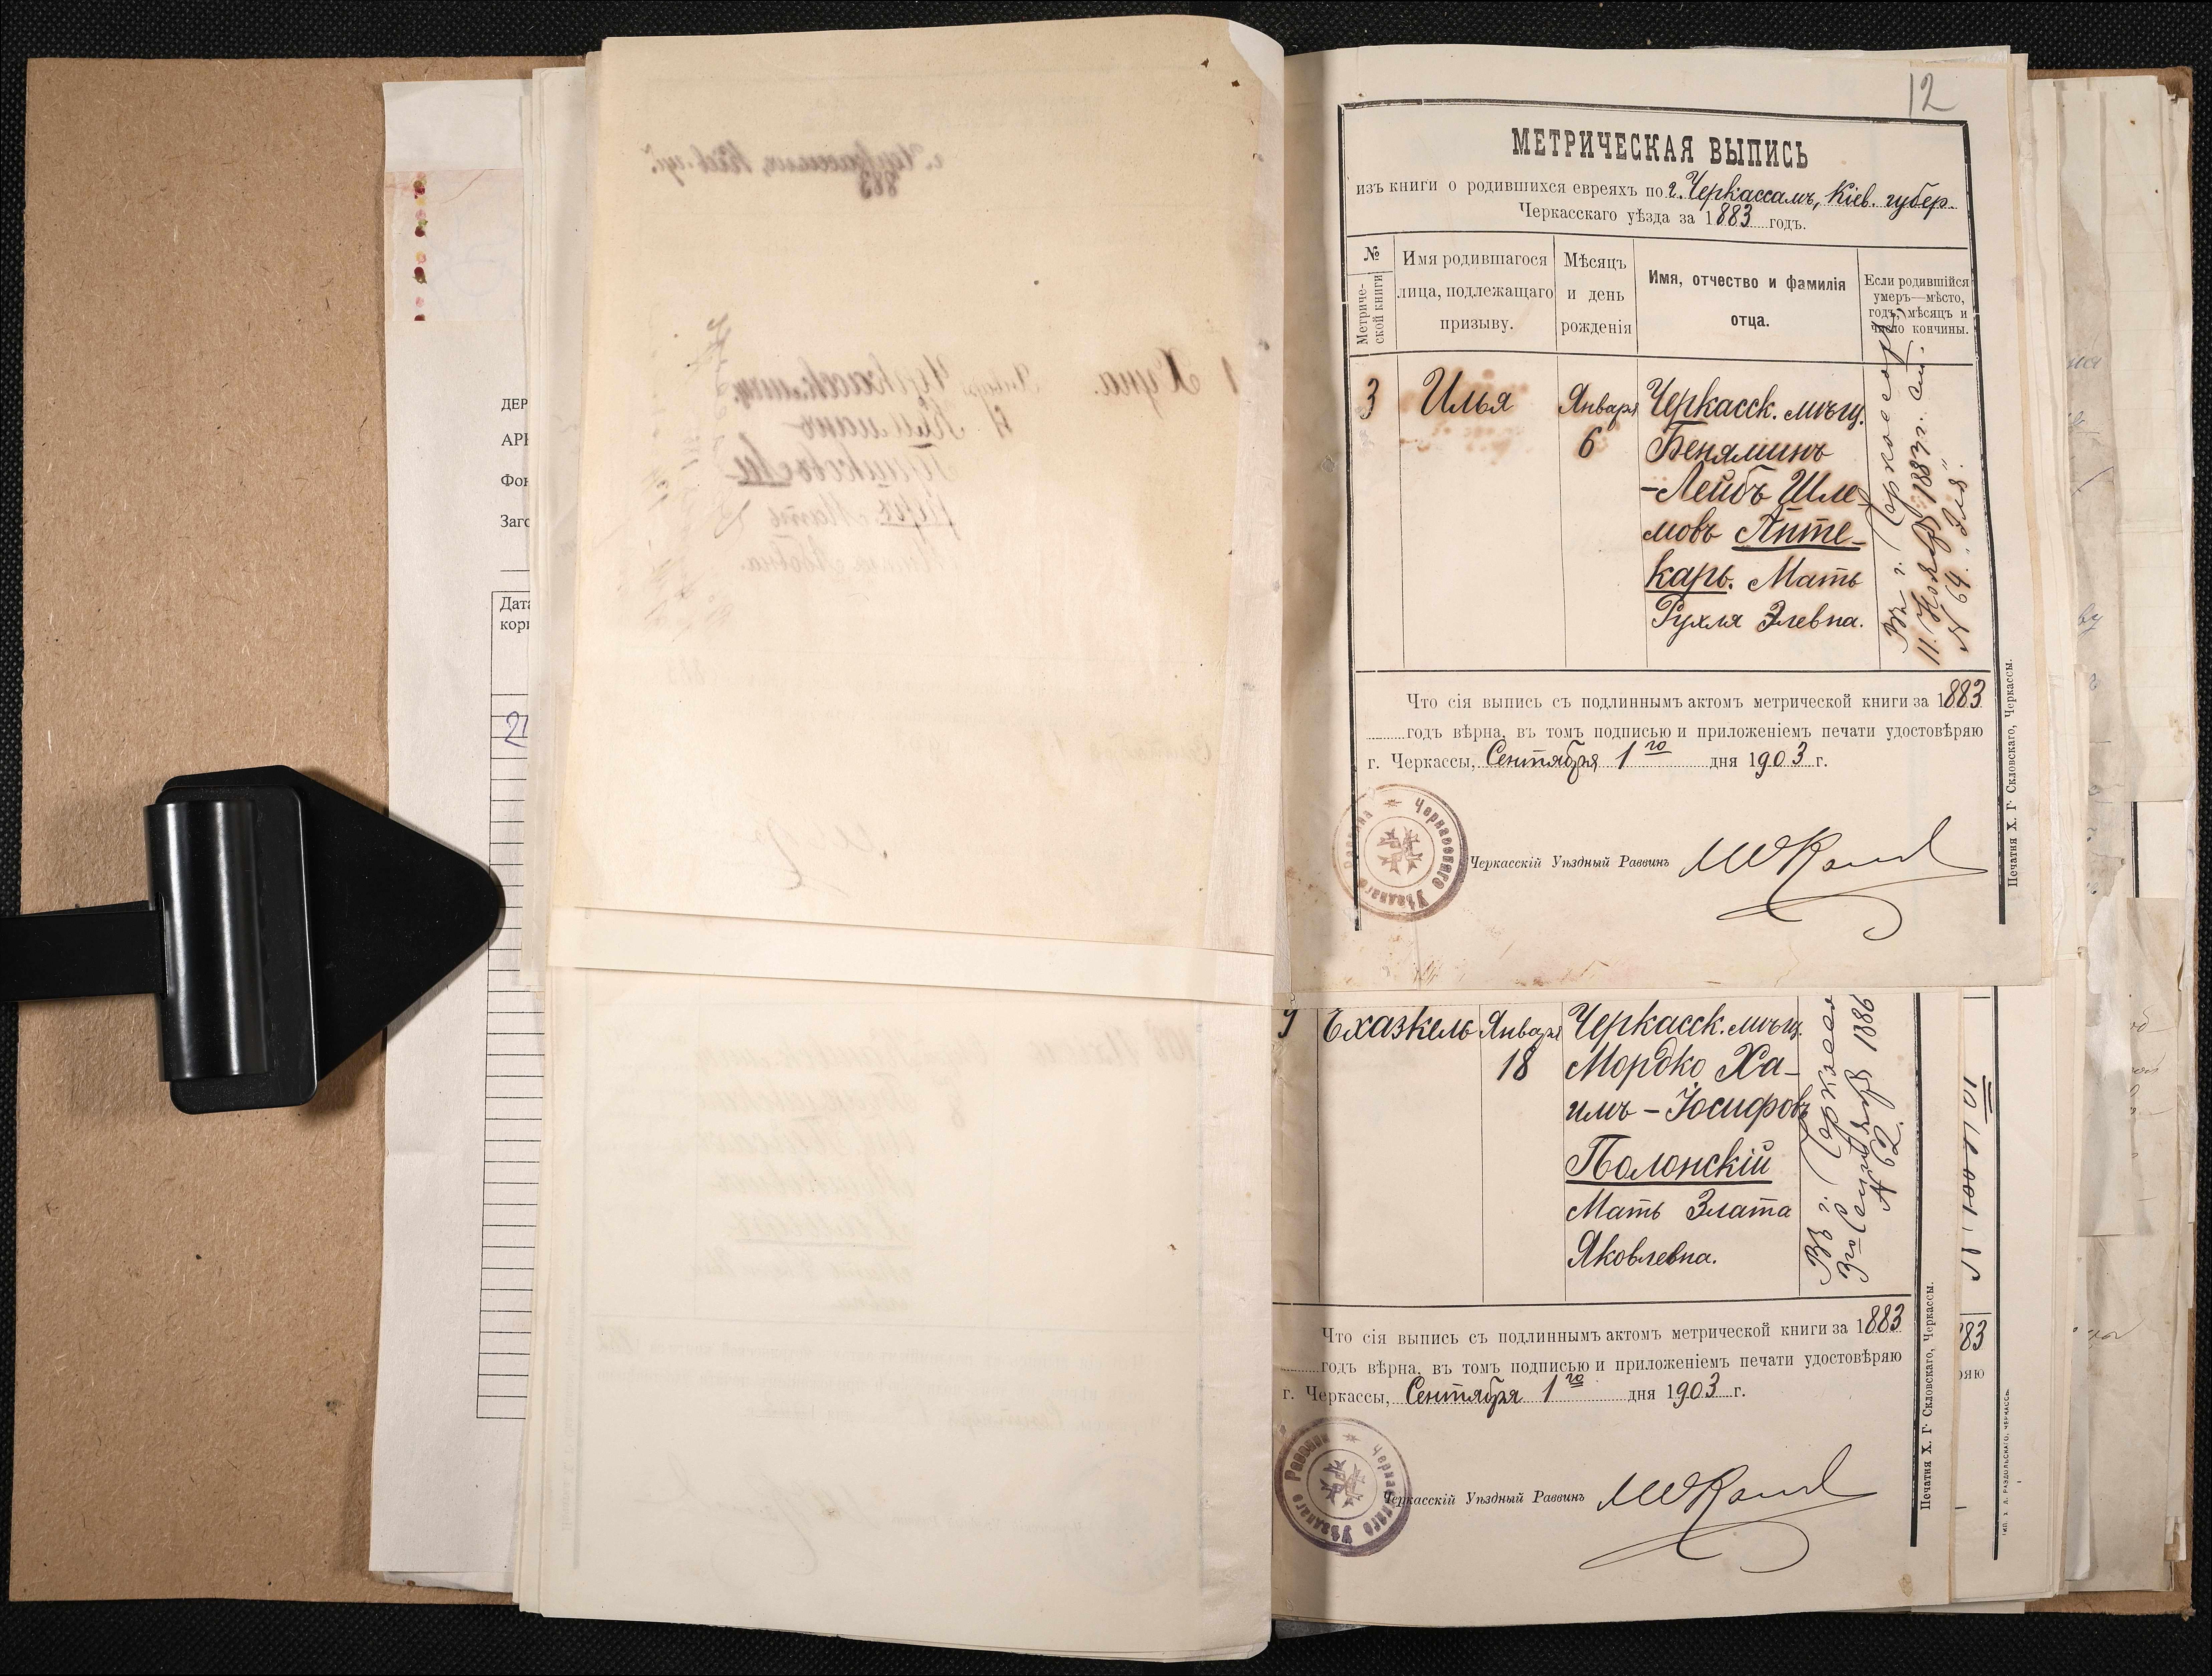 12
МЕТРИЧЕСКАЯ ВЫПИСЬ
изъ книги о родившихся евреяхъ по г. Черкассамъ, Кіев. губер.
Черкасскаго уѣзда за 1883 годъ.
№ Метриче-
ской книги
Имя родившагося
лица, подлежащаго
призыву.
Мѣсяцъ
и день
рожденія
Имя, отчество и фамилія
отца.
Если родившійся
умеръ—мѣсто,
годъ, мѣсяцъ и
число кончины.
3 Илья Января Черкасск. мѣщ.
6 Беняминъ
-Лейбъ Шле-
мовъ Апте-
карь. Мать
Рухля Элевна.
Въ г. Черкассахъ
11. Ноября 1883 г. ст.
№ 64. "Эля".
Что сія выпись съ подлиннымъ актомъ метрической книги за 1883
годъ вѣрна, въ томъ подписью и приложеніемъ печати удостовѣряю
г. Черкассы, Сентября 1го дня 1903 г.
Черкасскаго Уѣзднаго Раввина
Черкасскій Уѣздный Раввинъ
Печатня Х. Г. Скловскаго, Черкассы.
9 Ехазкель Января Черкасск. мѣщ.
18 Мордко Ха-
имъ-Іосифовъ
Полонскій
Мать Злата
Яковлевна.
Въ г. Черкассах
3го Сентября 1886
№ 62.
Что сія выпись съ подлиннымъ актомъ метрической книги за 1883
годъ вѣрна, въ томъ подписью и приложеніемъ печати удостовѣряю
г. Черкассы, Сентября 1го дня 1903 г.
Черкасскаго Уѣзднаго Раввина
Черкасскій Уѣздный Раввинъ
Печатня Х. Г. Скловскаго, Черкассы.
83
ряю
ТИП. Х. Л. РАЗДОЛЬСКАГО, ЧЕРКАССЫ.
ДЕР
АРХ
Фон
Заго
Дата
кори
21